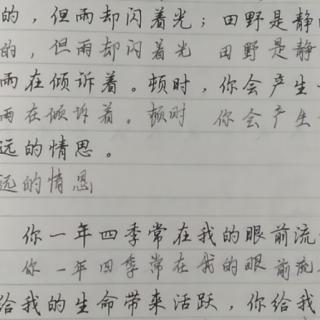 的，但雨却闪着光；田野是静
的，但雨却闪着光 田野是静
雨在倾诉着。顿时，你会产生
雨在倾诉着。顿时 你会产生
远的情思。
远的情思
你一年四季常在我的眼前流
你一年四季常在我的眼前流
给我的生命带来活跃，你给我